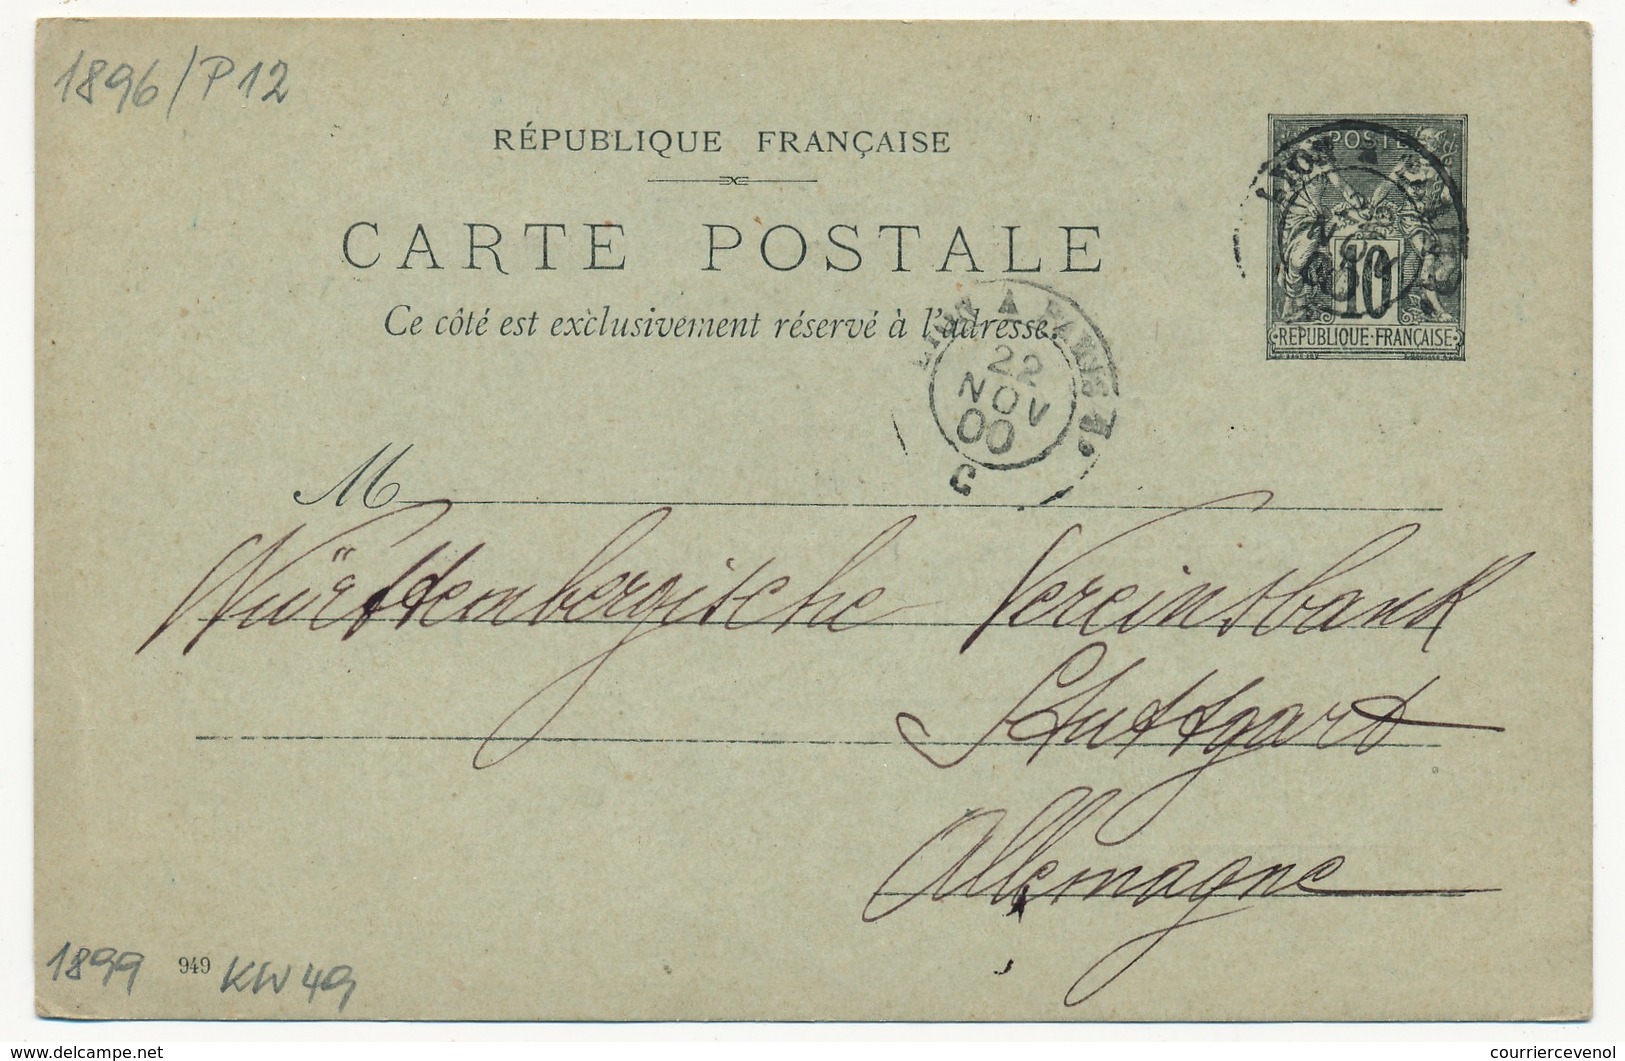 1896/P12
RÉPUBLIQUE FRANÇAISE
CARTE POSTALE
Ce côté est exclusivement réservé à l'adresse.
POSTE
10
RÉPUBLIQUE FRANÇAISE
LYON A PARIS
LYON A PARIS
22
NOV
00
C
M
Württembergische Vereinsbank
Stuttgart
Allemagne
1899 949 KW 49
www.delcampe.net
courriercevenol